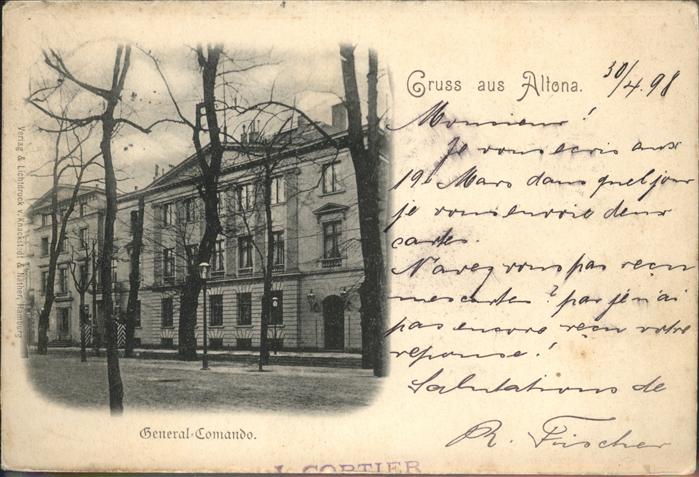 Gruss aus Altona.
30/4.98
Monsieur!
Je vous écris aux
19. Mars dans quel jour
je vous envoie deux
cartes.
N'avez vous pas reçu
mes cartes? par j'n'ai
pas encore reçu votre
reponse!
Salutations de
R. Fischer
General-Comando.
Verlag & Lichtdruck v. Knackstedt & Näther, Hamburg
J. CORTIER